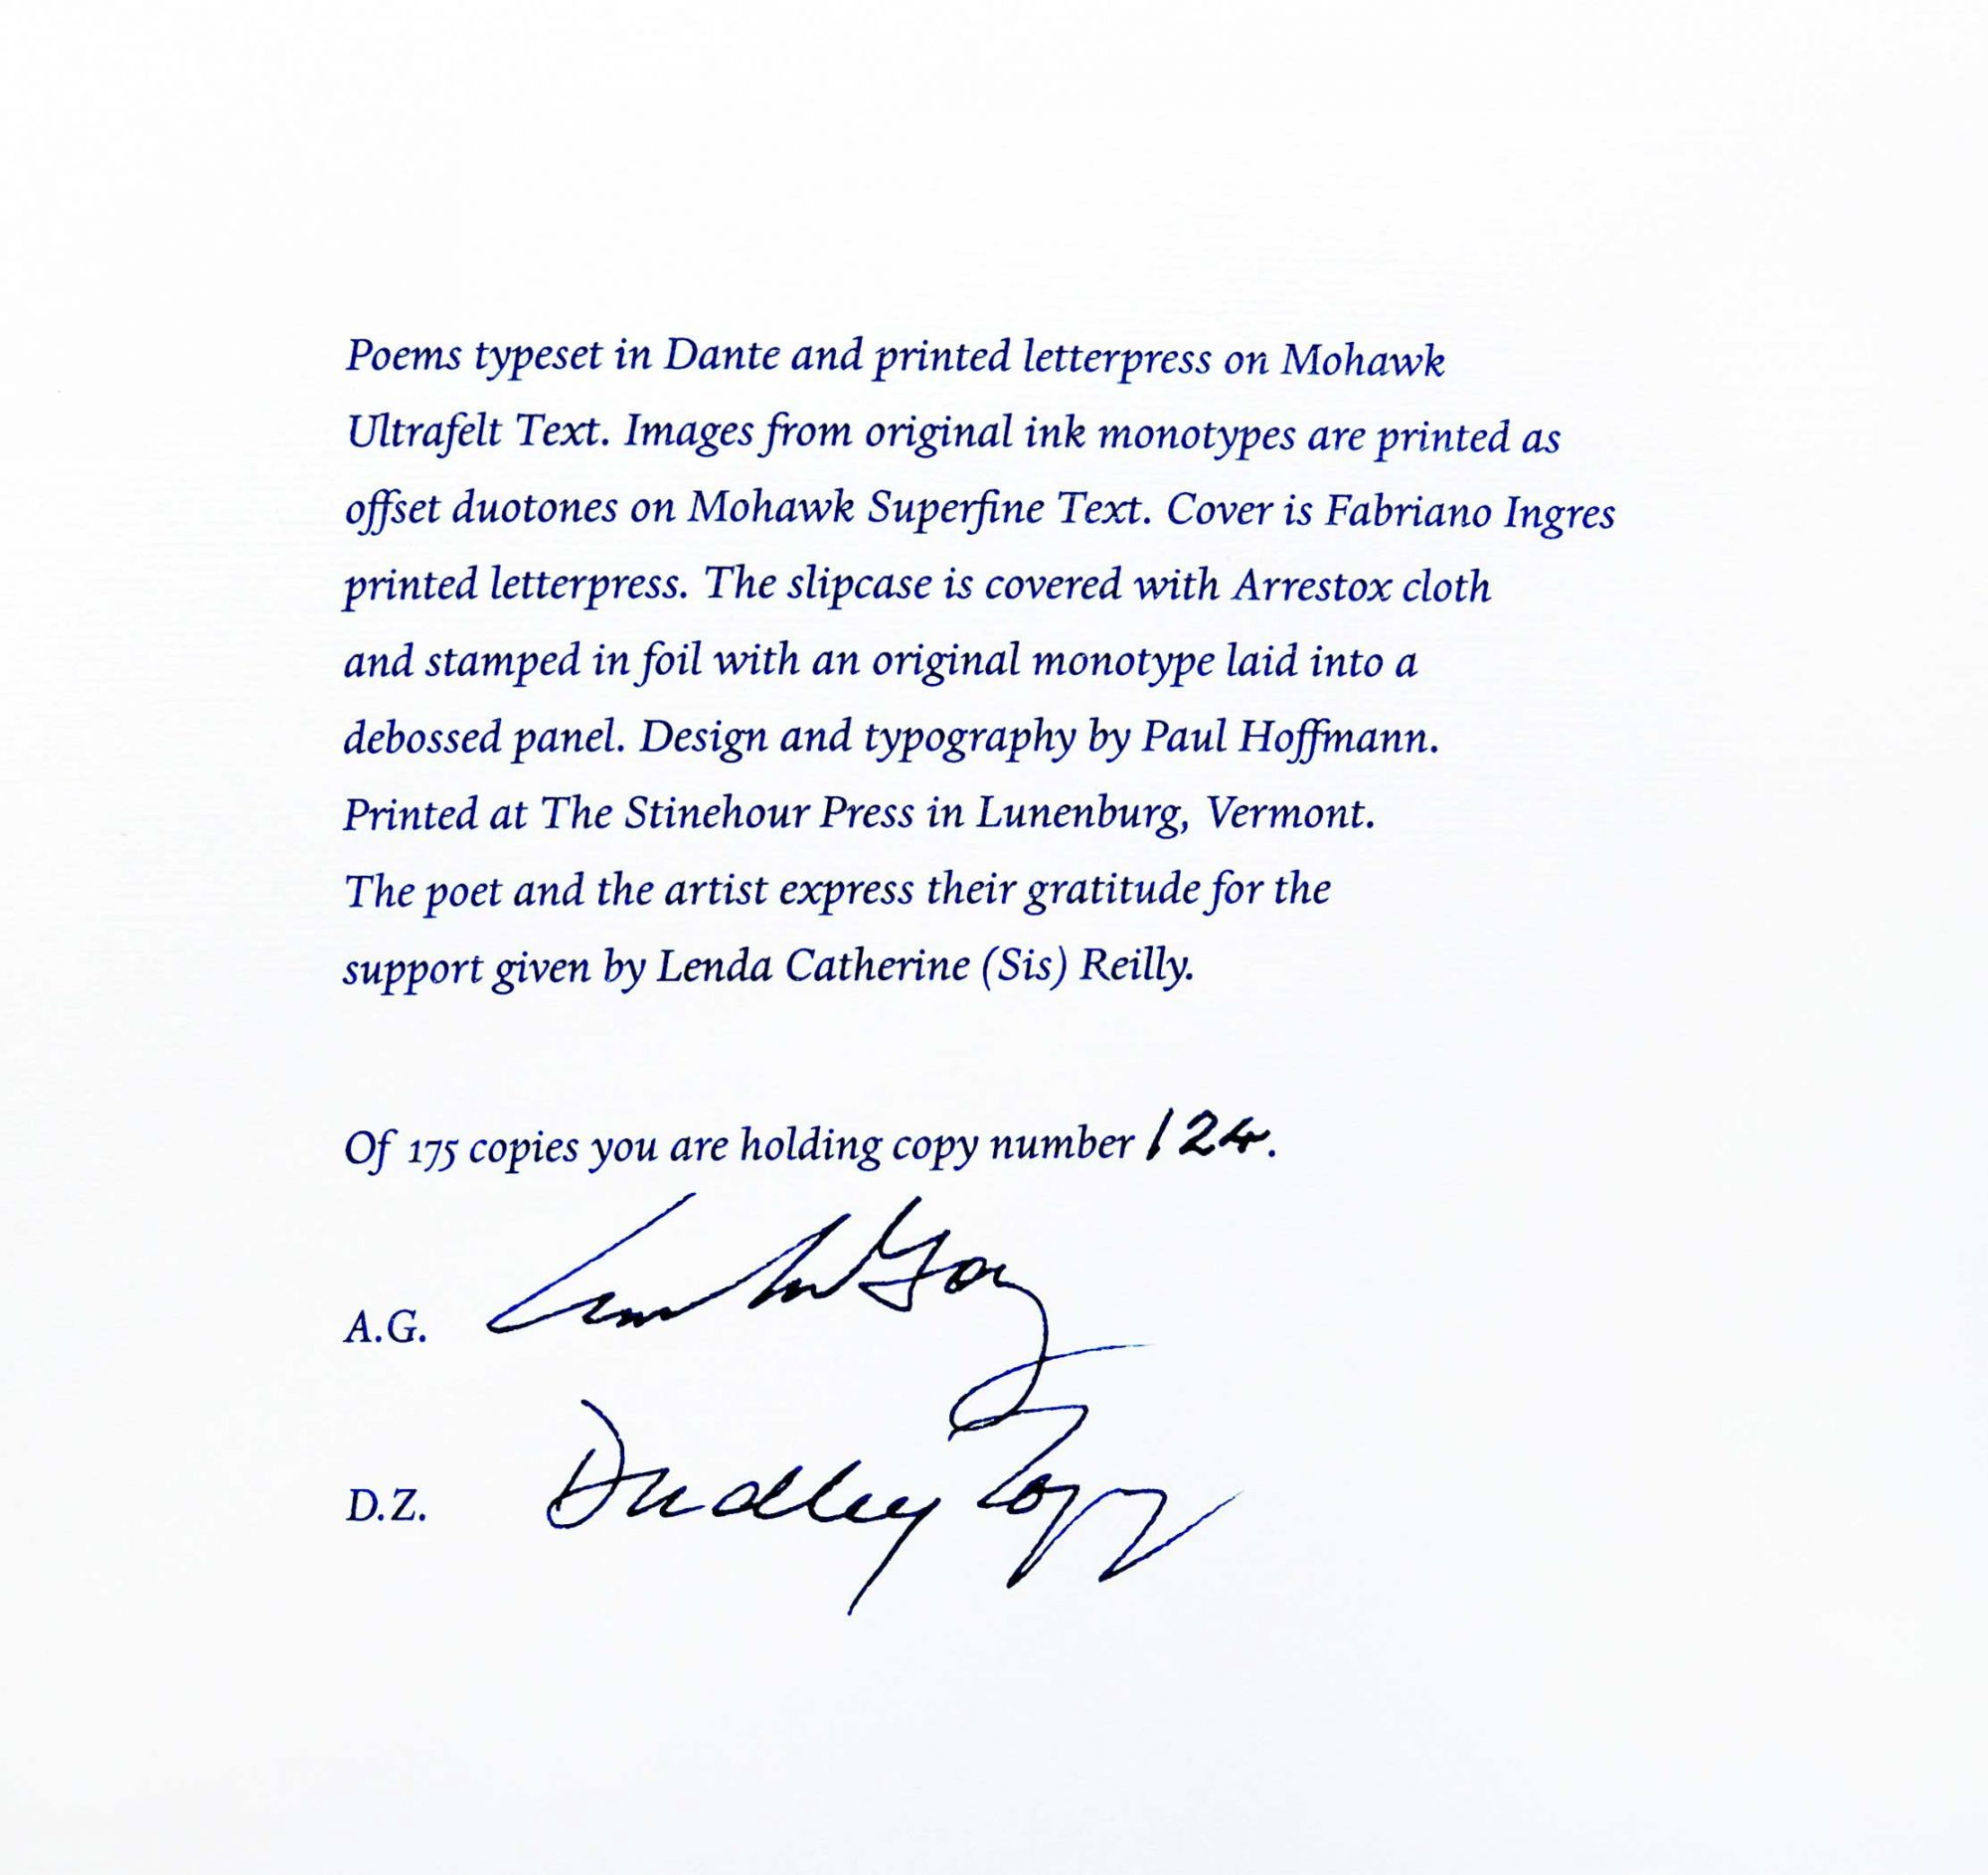 Poems typeset in Dante and printed letterpress on Mohawk
Ultrafelt Text. Images from original ink monotypes are printed as
offset duotones on Mohawk Superfine Text. Cover is Fabriano Ingres
printed letterpress. The slipcase is covered with Arrestox cloth
and stamped in foil with an original monotype laid into a
debossed panel. Design and typography by Paul Hoffmann.
Printed at The Stinehour Press in Lunenburg, Vermont.
The poet and the artist express their gratitude for the
support given by Lenda Catherine (Sis) Reilly.
Of 175 copies you are holding copy number 124.
A.G.
D.Z. Dudley Zopp